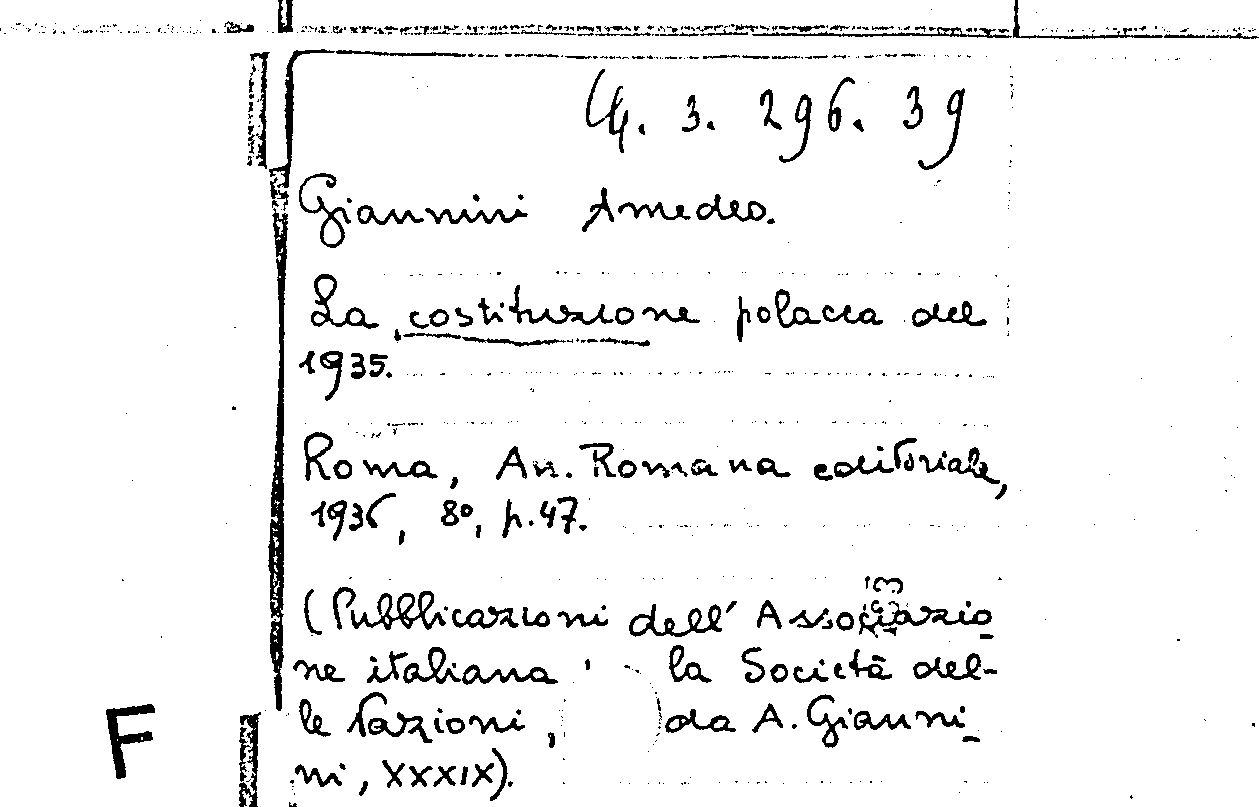 4. 3. 296. 39
Giannini Amedeo.
La costituzione polacca del
1935.
Roma, An. Romana editoriale,
1936, 8°, p. 47.
(Pubblicazioni dell' Associazio-
ne italiana la Società del-
le Nazioni, da A. Gianni-
ni, XXXIX).
F